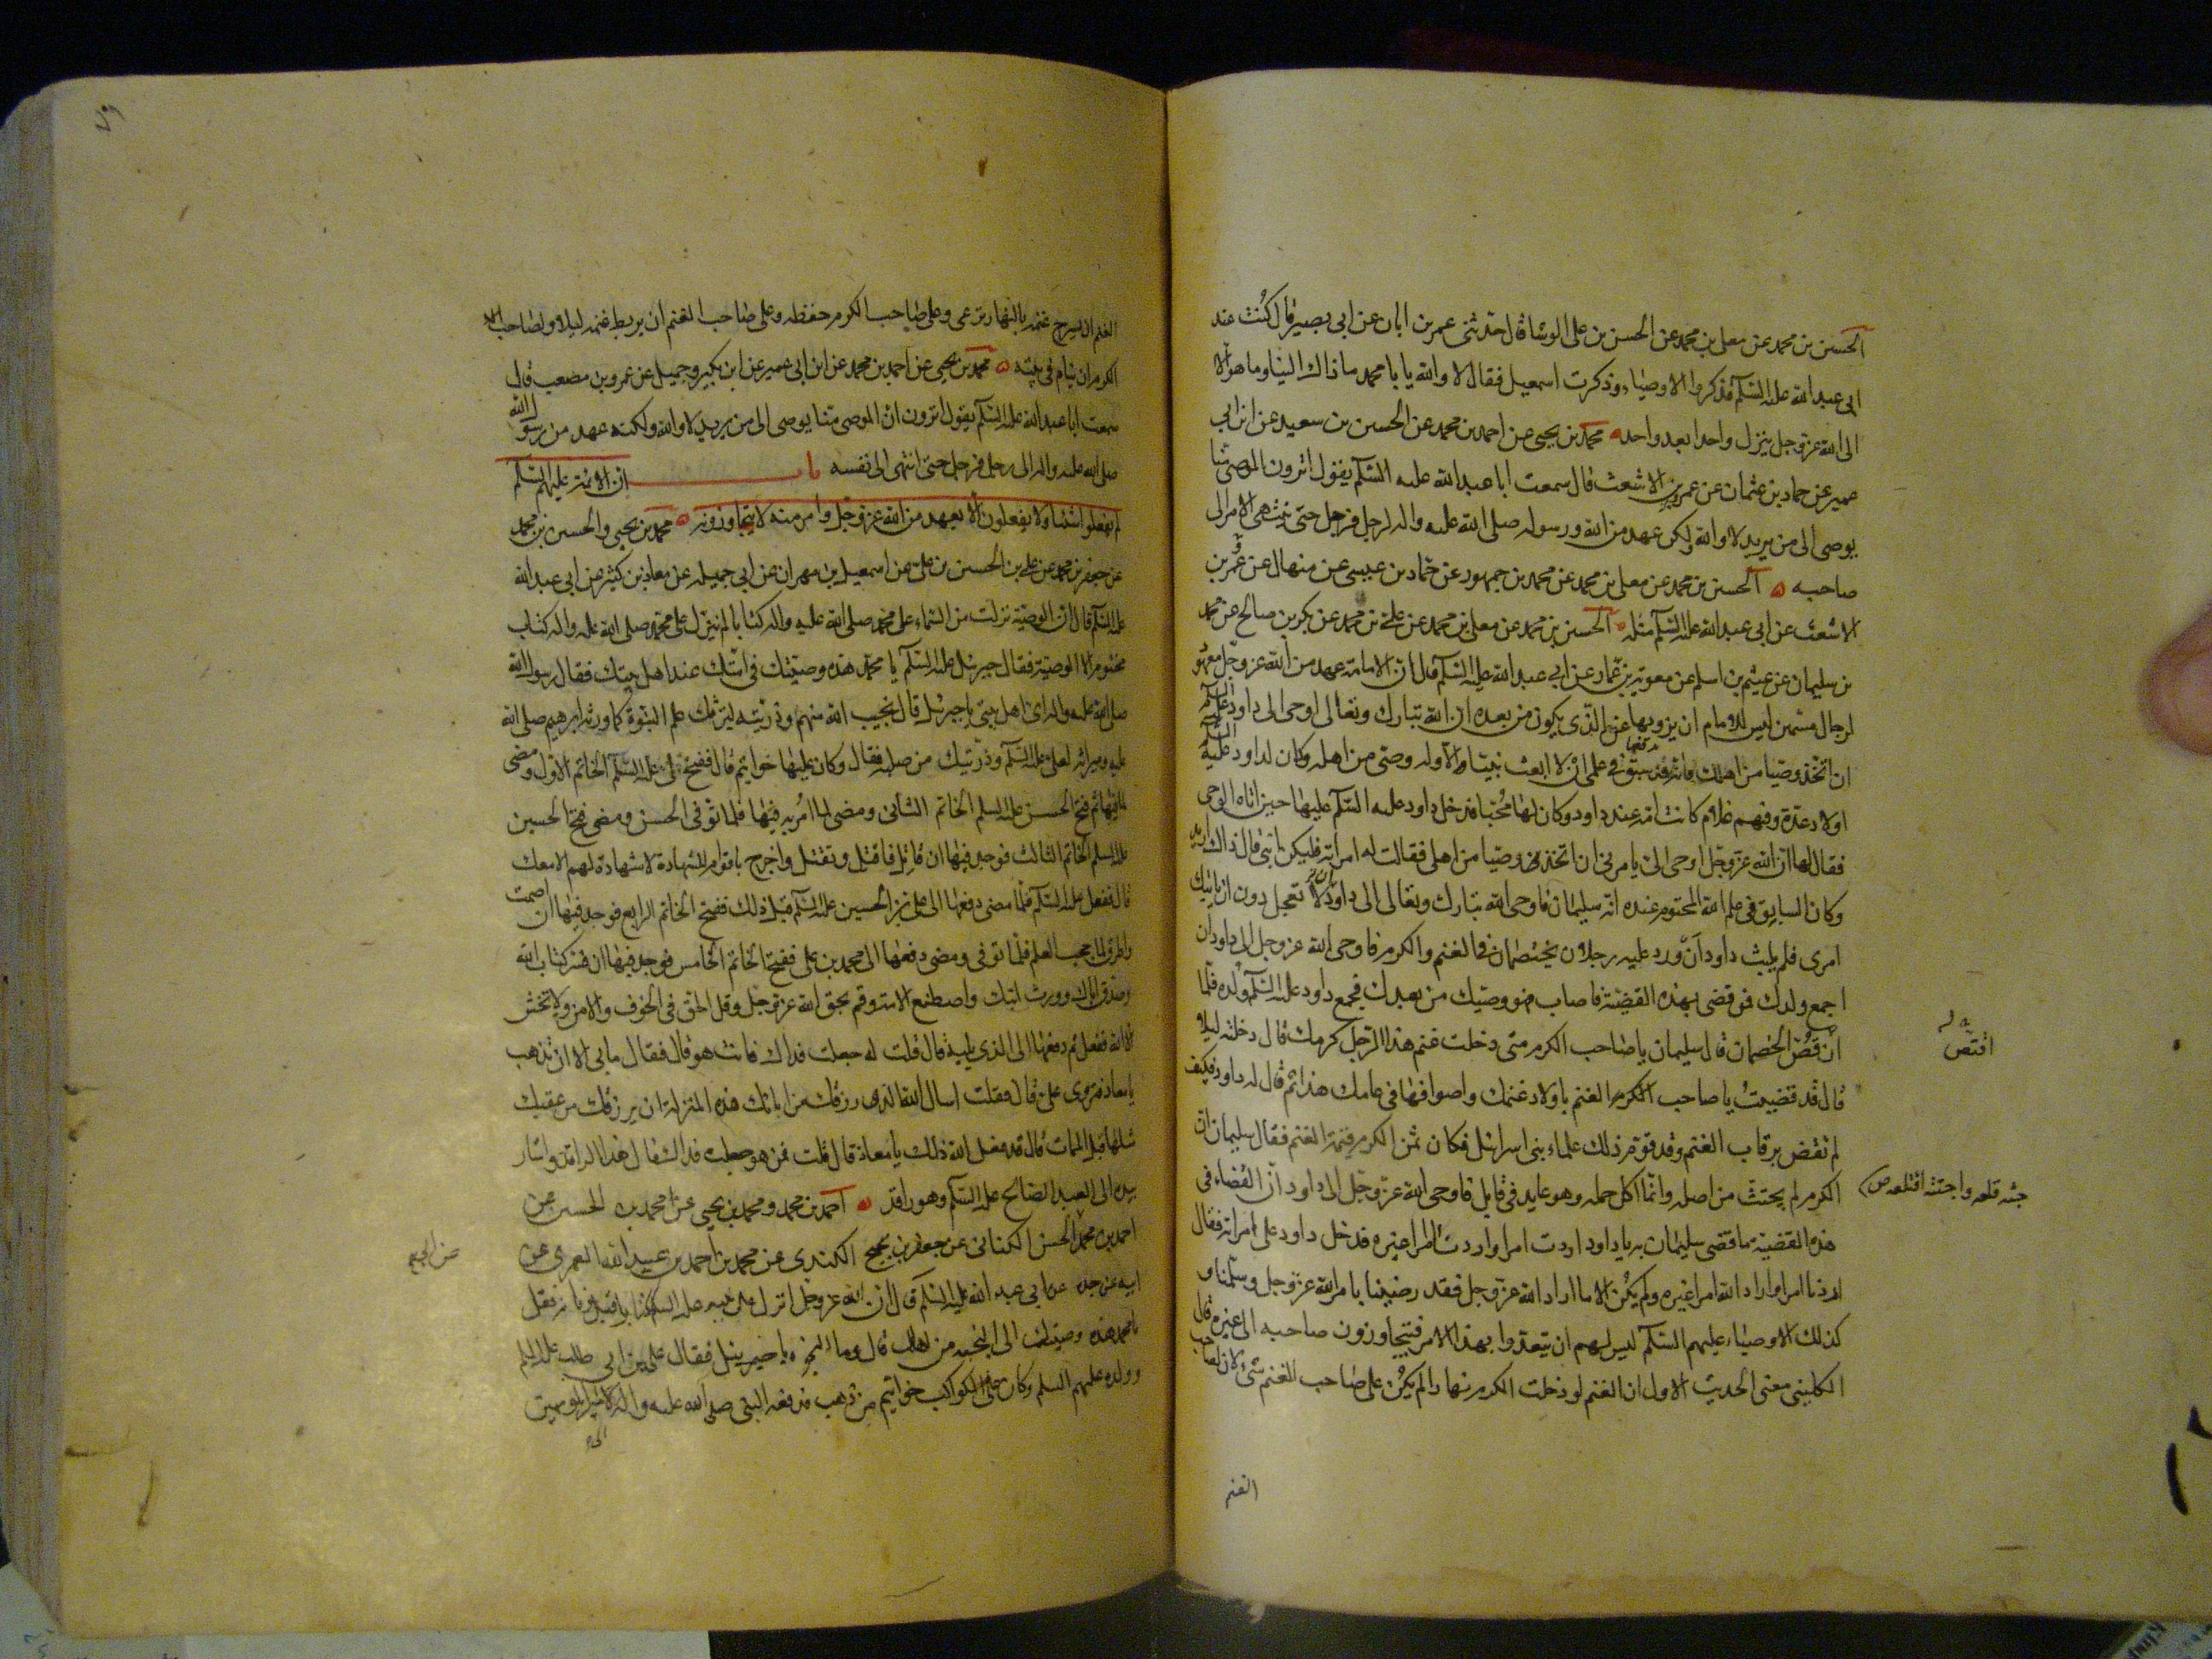 الحسين بن محمد عن معلى بن محمد عن الحسن بن على الوشا قال حدثنى عمر بن ابان عن ابى بصير قال كنت عند
ابى عبد الله عليه السلم فذكروا الاوصياء وذكرت اسمعيل فقال لا والله يا با محمد ما ذاك الينا وما هو الا
الى الله عز وجل ينزل واحدا بعد واحد محمد بن يحيى عن احمد بن محمد عن الحسين بن سعيد عن ابن ابى
عمير عن حماد بن عثمان عن عمرو بن الاشعث قال سمعت ابا عبد الله عليه السلم يقول اترون الموصى منا
يوصى الى من يريد لا والله ولكن عهد من الله ورسوله صلى الله عليه واله لرجل فرجل حتى ينتهى الامر الى
صاحبه الحسين بن محمد عن معلى بن محمد عن محمد بن جمهور عن حماد بن عيسى عن منهال عن عمرو بن
الاشعث عن ابى عبد الله عليه السلم مثله الحسين بن محمد عن معلى بن محمد عن على بن محمد عن بكر بن صالح عن محمد
بن سليمان عن عيثم بن اسلم عن معوية بن عمار عن ابى عبد الله عليه السلم قال ان الامامة عهد من الله عز وجل معهود
لرجال مسمين ليس للامام ان يزويها عن الذى يكون من بعده ان الله تبارك وتعالى اوحى الى داود عليه السلم
ان اتخذ وصيا من اهلك فانه قد سبق فى علمى ان لا ابعث نبيا الا وله وصى من اهله وكان لداود عليه السلم
اولاد عدة وفيهم غلام كانت امه عند داود وكان لها محبا فدخل داود عليه السلم عليها حين اتاه الوحى
فقال لها ان الله عز وجل اوحى الى يامرنى ان اتخذ وصيا من اهلى فقالت له امراته فليكن ابنى قال ذاك اريد
وكان السابق فى علم الله المحتوم عنده انه سليمان فاوحى الله تبارك وتعالى الى داود ان لا تعجل دون ان ياتيك
امرى فلم يلبث داود ان ورد عليه رجلان يختصمان فى الغنم والكرم فاوحى الله عز وجل الى داود ان
اجمع ولدك فمن قضى بهذه القضية فاصاب فهو وصيك من بعدك فجمع داود عليه السلم ولده فلما
ان قص الخصمان قال سليمان يا صاحب الكرم متى دخلت غنم هذا الرجل كرمك قال دخلته ليلا
قال قد قضيت يا صاحب الكرم الغنم باولاد غنمك واصوافها فى عامك هذا ثم قال له داود فكيف
لم تقض برقاب الغنم وقد قوم ذلك علماء بنى اسرائل فكان ثمن الكرم قيمة الغنم فقال سليمان ان
الكرم لم يجتث من اصله وانما اكل حمله وهو عايد فى قابل فاوحى الله عز وجل الى داود ان القضاء فى
هذه القضية ما قضى سليمان به يا داود اردت امرا واردنا امرا غيره فدخل داود على امراته فقال
اردنا امرا واراد الله امرا غيره ولم يكن الا ما اراد الله عز وجل فقد رضينا بامر الله عز وجل وسلمنا و
كذلك الاوصياء عليهم السلم ليس لهم ان يتعدوا بهذا الامر فيتجاوزون صاحبه الى غيره قال
الكلينى معنى الحديث الاول ان الغنم لو دخلت الكرم نهارا لم يكن على صاحب الغنم شئ لان لصاحب
الغنم
اقتص
جثه قلعه واجتثه اقتلعه ص
الغنم ان يسرح غنمه بالنهار ترعى وعلى صاحب الكرم حفظه وعلى صاحب الغنم ان يربط غنمه ليلا ولصاحب
الكرم ان ينام فى بيته محمد بن يحيى عن احمد بن محمد عن ابن ابى عمير عن ابن بكير وجميل عن عمرو بن مصعب قال
سمعت ابا عبد الله عليه السلم يقول اترون ان الموصى منا يوصى الى من يريد لا والله ولكنه عهد من رسول الله
صلى الله عليه واله الى رجل فرجل حتى انتهى الى نفسه باب ان الائمة عليهم السلم
لم يفعلوا شيئا ولا يفعلون الا بعهد من الله عز وجل وامر منه لا يتجاوزونه محمد بن يحيى والحسين بن محمد
عن جعفر بن محمد عن على بن الحسين بن على عن اسمعيل بن مهران عن ابى جميله عن معاذ بن كثير عن ابى عبد الله
عليه السلم قال ان الوصية نزلت من السماء على محمد صلى الله عليه واله كتابا لم ينزل على محمد صلى الله عليه واله كتاب
مختوم الا الوصية فقال جبرئل عليه السلم يا محمد هذه وصيتك فى امتك عند اهل بيتك فقال رسول الله
صلى الله عليه واله اى اهل بيتى يا جبرئل قال نجيب الله منهم وذريته ليرثك علم النبوة كما ورثه ابرهيم صلى الله
عليه وميراثه لعلى عليه السلم وذريتك من صلبه فقال وكان عليها خواتيم قال ففتح على عليه السلم الخاتم الاول ومضى
لما فيها ثم فتح الحسن عليه السلم الخاتم الثانى ومضى لما امر به فيها فلما توفى الحسن ومضى فتح الحسين
عليه السلم الخاتم الثالث فوجد فيها ان قاتل فاقتل وتقتل واخرج باقوام للشهادة لا شهادة لهم الا معك
قال ففعل عليه السلم فلما مضى دفعها الى على بن الحسين عليه السلم قبل ذلك ففتح الخاتم الرابع فوجد فيها ان اصمت
واطرق لما حجب العلم فلما توفى ومضى دفعها الى محمد بن على ففتح الخاتم الخامس فوجد فيها ان فسر كتاب الله
وصدق اباك وورث ابنك واصطنع الامة وقم بحق الله عز وجل وقل الحق فى الخوف والامن ولا تخش
الا الله ففعل ثم دفعها الى الذى يليه قال قلت له جعلت فداك فانت هو قال فقال ما بى الا ان تذهب
يا معاذ فتروى على قال فقلت اسال الله الذى رزقك من ابائك هذه المنزلة ان يرزقك من عقبك
مثلها قبل الممات قال قد فعل الله ذلك يا معاذ قال قلت فمن هو جعلت فداك قال هذا الراقد واشار
بيده الى العبد الصالح عليه السلم وهو راقد احمد بن محمد ومحمد بن يحيى عن محمد بن الحسين عن
احمد بن محمد الحسن الكنانى عن جعفر بن نجيح الكندى عن محمد بن احمد بن عبيد الله العمرى عن
ابيه عن جده عن ابى عبد الله عليه السلم قال ان الله عز وجل انزل على نبيه
يا محمد هذه وصيتك الى النجبه من اهلك قال وما النجبه يا جبرئيل فقال على بن ابى طالب عليه السلم
وولده عليهم السلم وكان على الكواكب خواتيم من ذهب فدفعه النبى صلى الله عليه واله